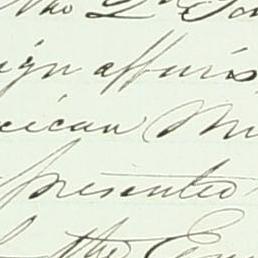 the
ign affairs
rican Mi
presented
the Em